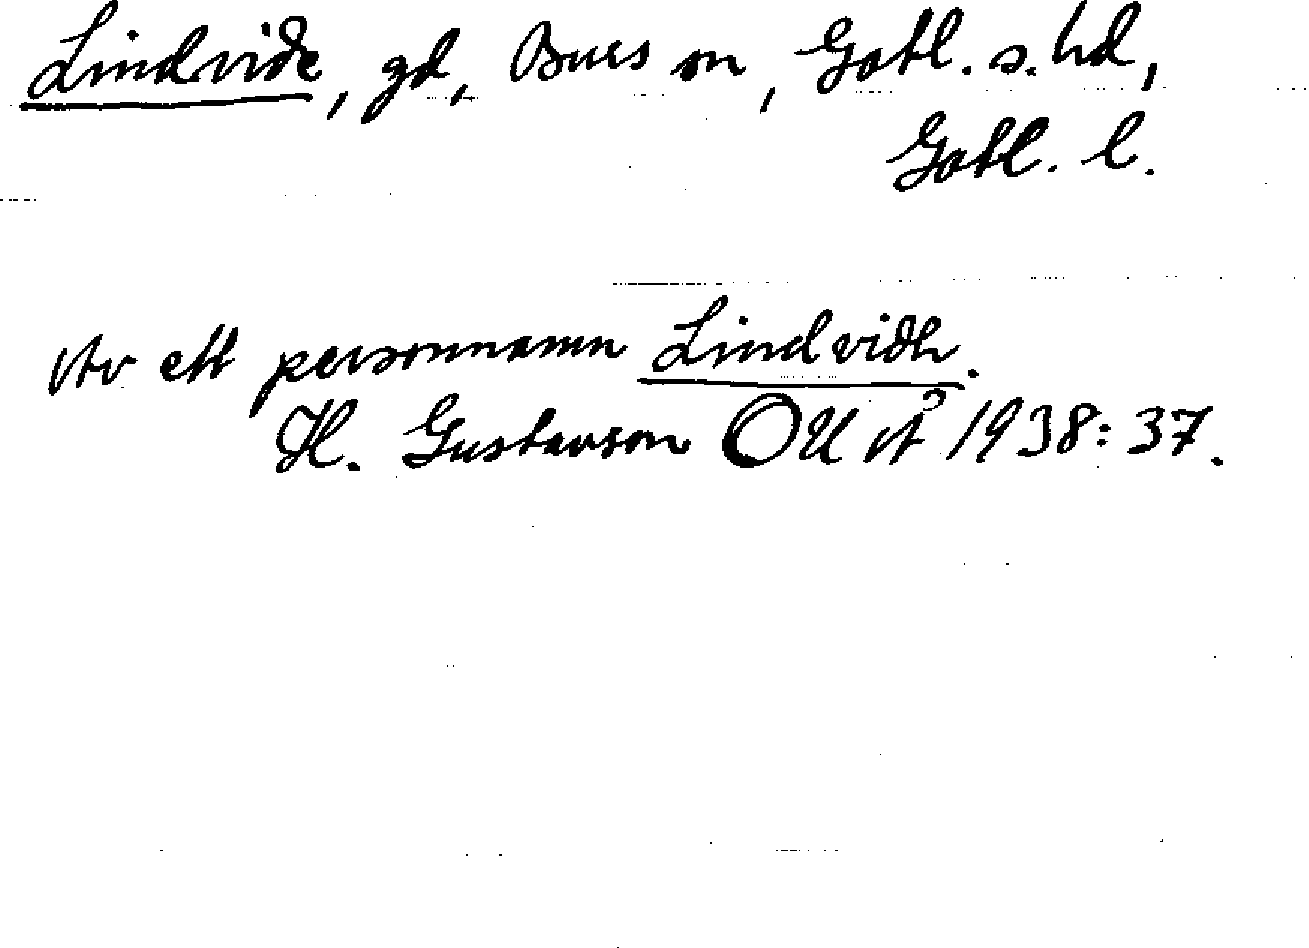 Lindvide, gd, Burs sn, Gotl. s. hd,
Gotl. l.
Av ett personnamn Lindvidh.
H. Gustavson OUÅ 1938:37.